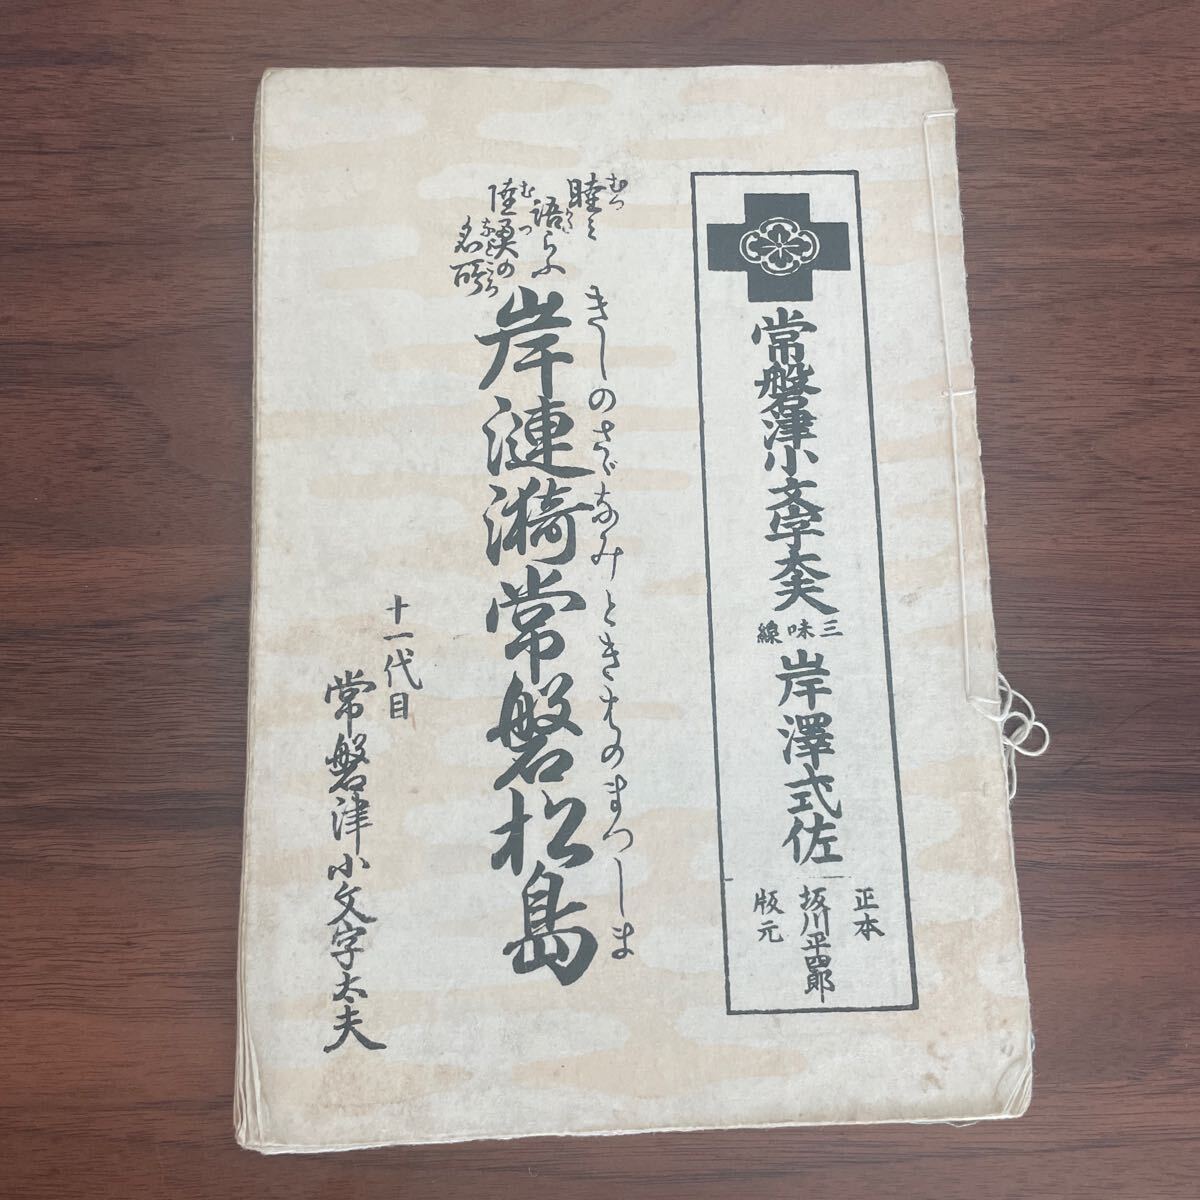 常磐津小文字太夫
三味線
岸澤式佐
正本
坂川平四郎
版元
睦み
むつ
語らふ
陸奥の
むつ
名所
などころ
岸漣漪常磐松島
きしのさゞなみときはのまつしま
十一代目
常磐津小文字太夫